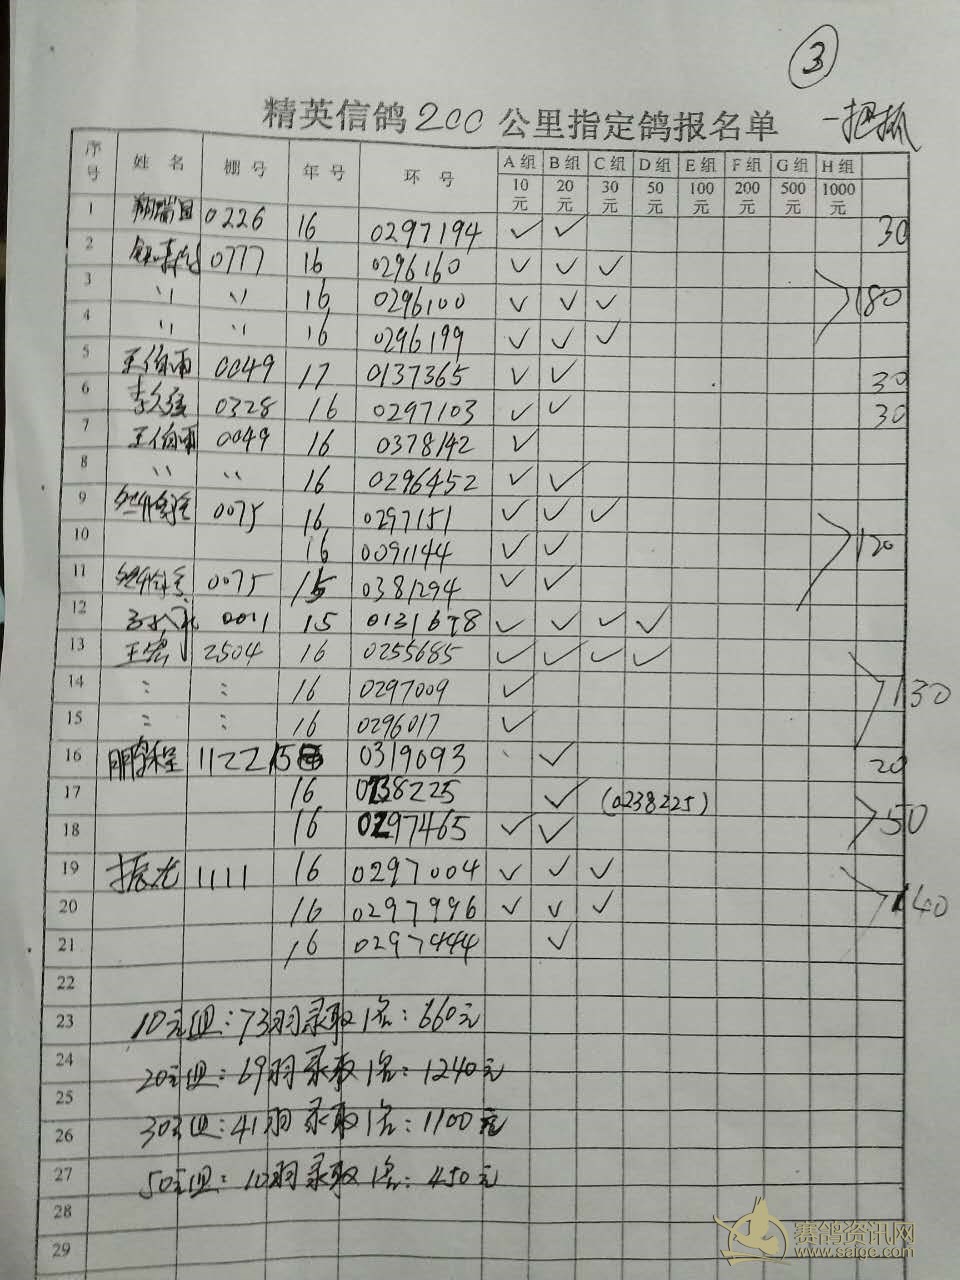 ③
精英信鸽200公里指定鸽报名单 一把抓
序号 姓名 棚号 年号 环号 A组 B组 C组 D组 E组 F组 G组 H组
10元 20元 30元 50元 100元 200元 500元 1000元
1 0226 16 0297194 ✓ ✓ 30
2 0777 16 0296160 ✓ ✓ ✓
3 〃 〃 16 0296100 ✓ ✓ ✓ 180
4 〃 〃 16 0296199 ✓ ✓ ✓
5 王伯雨 0049 17 0137365 ✓ ✓ 30
6 李久强 0328 16 0297103 ✓ ✓ 30
7 王伯雨 0049 16 0378142 ✓
8 〃 〃 16 0296452 ✓ ✓
9 0075 16 0297151 ✓ ✓ ✓
10 16 0091144 ✓ ✓ 120
11 0075 15 0381294 ✓ ✓
12 0011 15 ✓ ✓ ✓ ✓
13 王宏 2504 16 0255685 ✓ ✓ ✓ ✓
14 〃 〃 16 0297009 ✓ 130
15 〃 〃 16 0296017 ✓
16 鹏程 1122 15 0319693 ✓ 20
17 16 0238225 ✓ (0238225)
18 16 0297465 ✓ ✓ 50
19 振龙 1111 16 0297004 ✓ ✓ ✓
20 16 0297996 ✓ ✓ ✓ 140
21 16 0297444 ✓
22
23 10元组:73羽录取1名:660元
24 20元组:69羽录取1名:1240元
25
26 30元组:41羽录取1名:1100元
27 50元组:10羽录取1名:450元
28
29
赛鸽资讯网
www.saigc.com